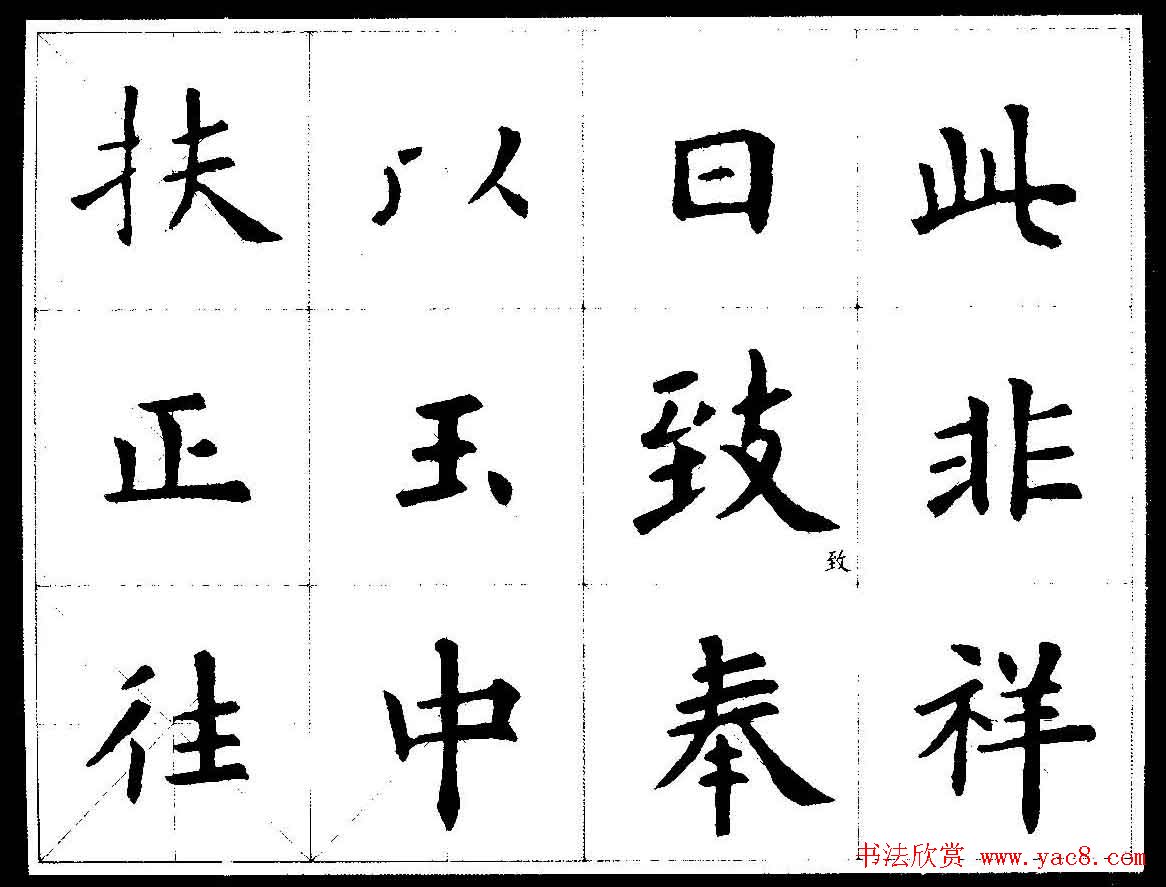 扶以日此
正玉致非
致
往中奉祥
书法欣赏 www.yac8.com